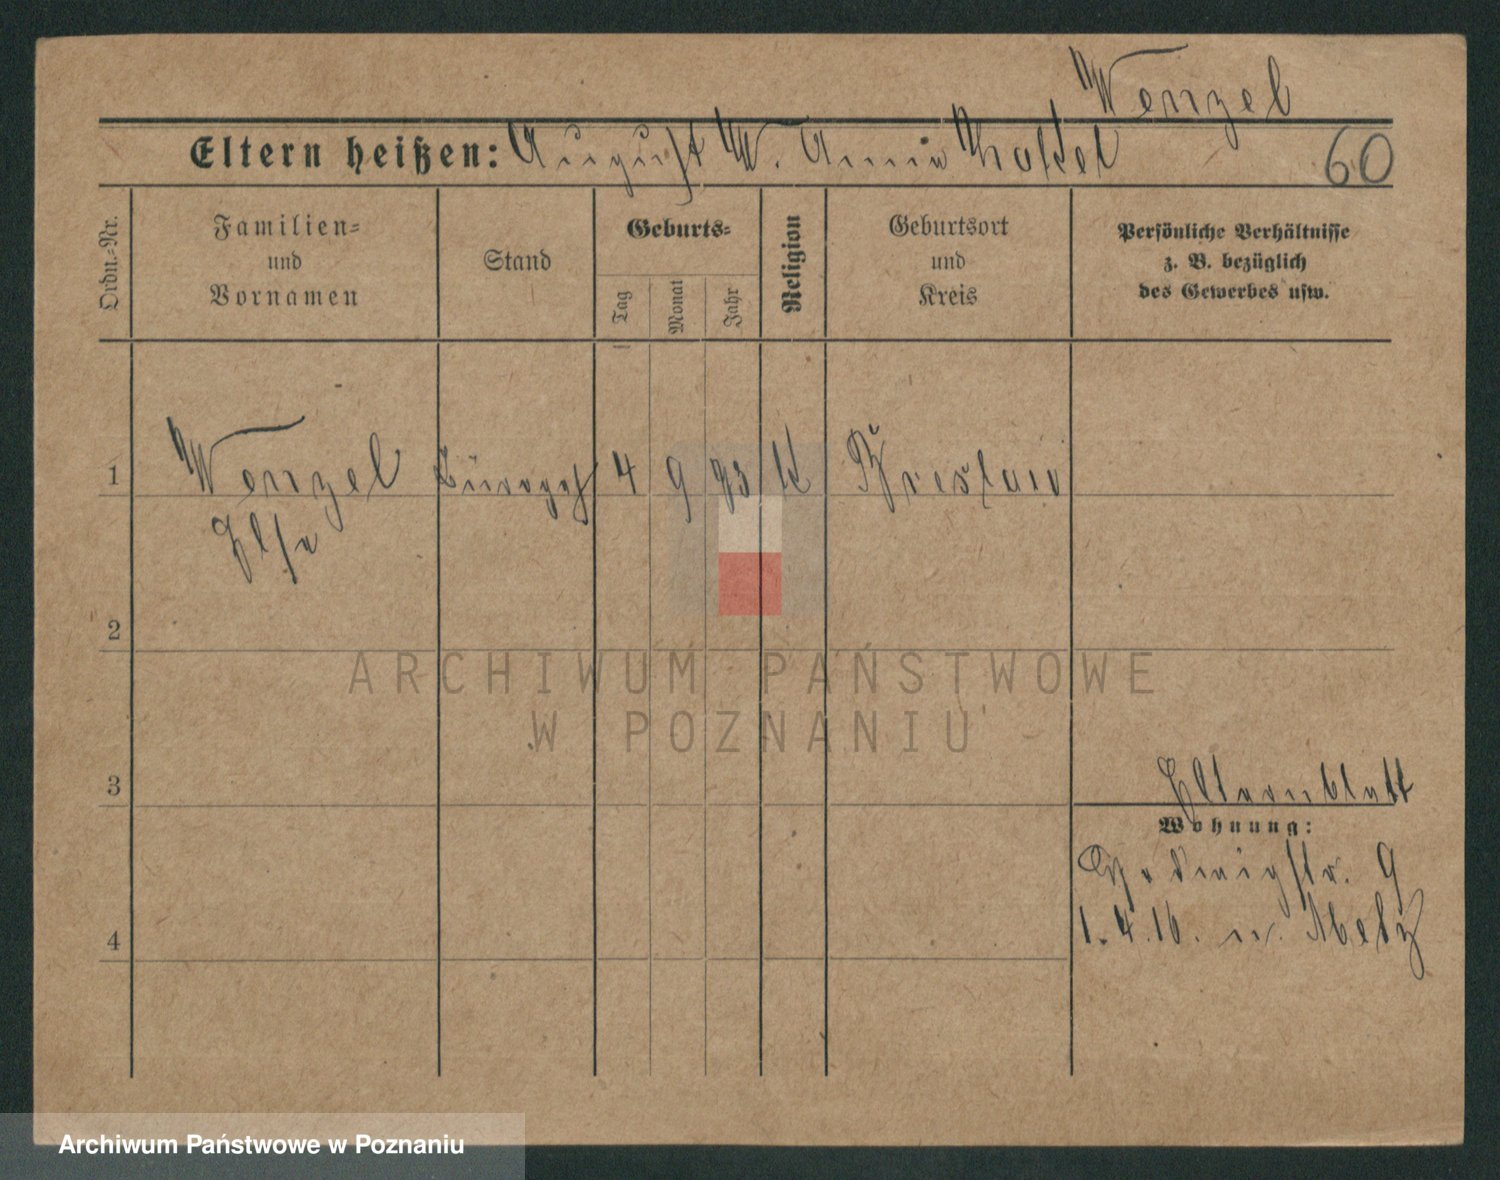 Wenzel
Eltern heißen: August W. Anna
60
Ordn.-Nr.
Familien- und Vornamen
Stand
Geburts-
Tag
Monat
Jahr
Religion
Geburtsort und Kreis
Persönliche Verhältnisse
z. B. bezüglich
des Gewerbes usw.
1 Wenzel 4 9 93 K Breslau
Else
2
ARCHIWUM PAŃSTWOWE
W POZNANIU
3
Elternblatt
Wohnung:
9
4
1. 4. 16. n. Metz
Archiwum Państwowe w Poznaniu